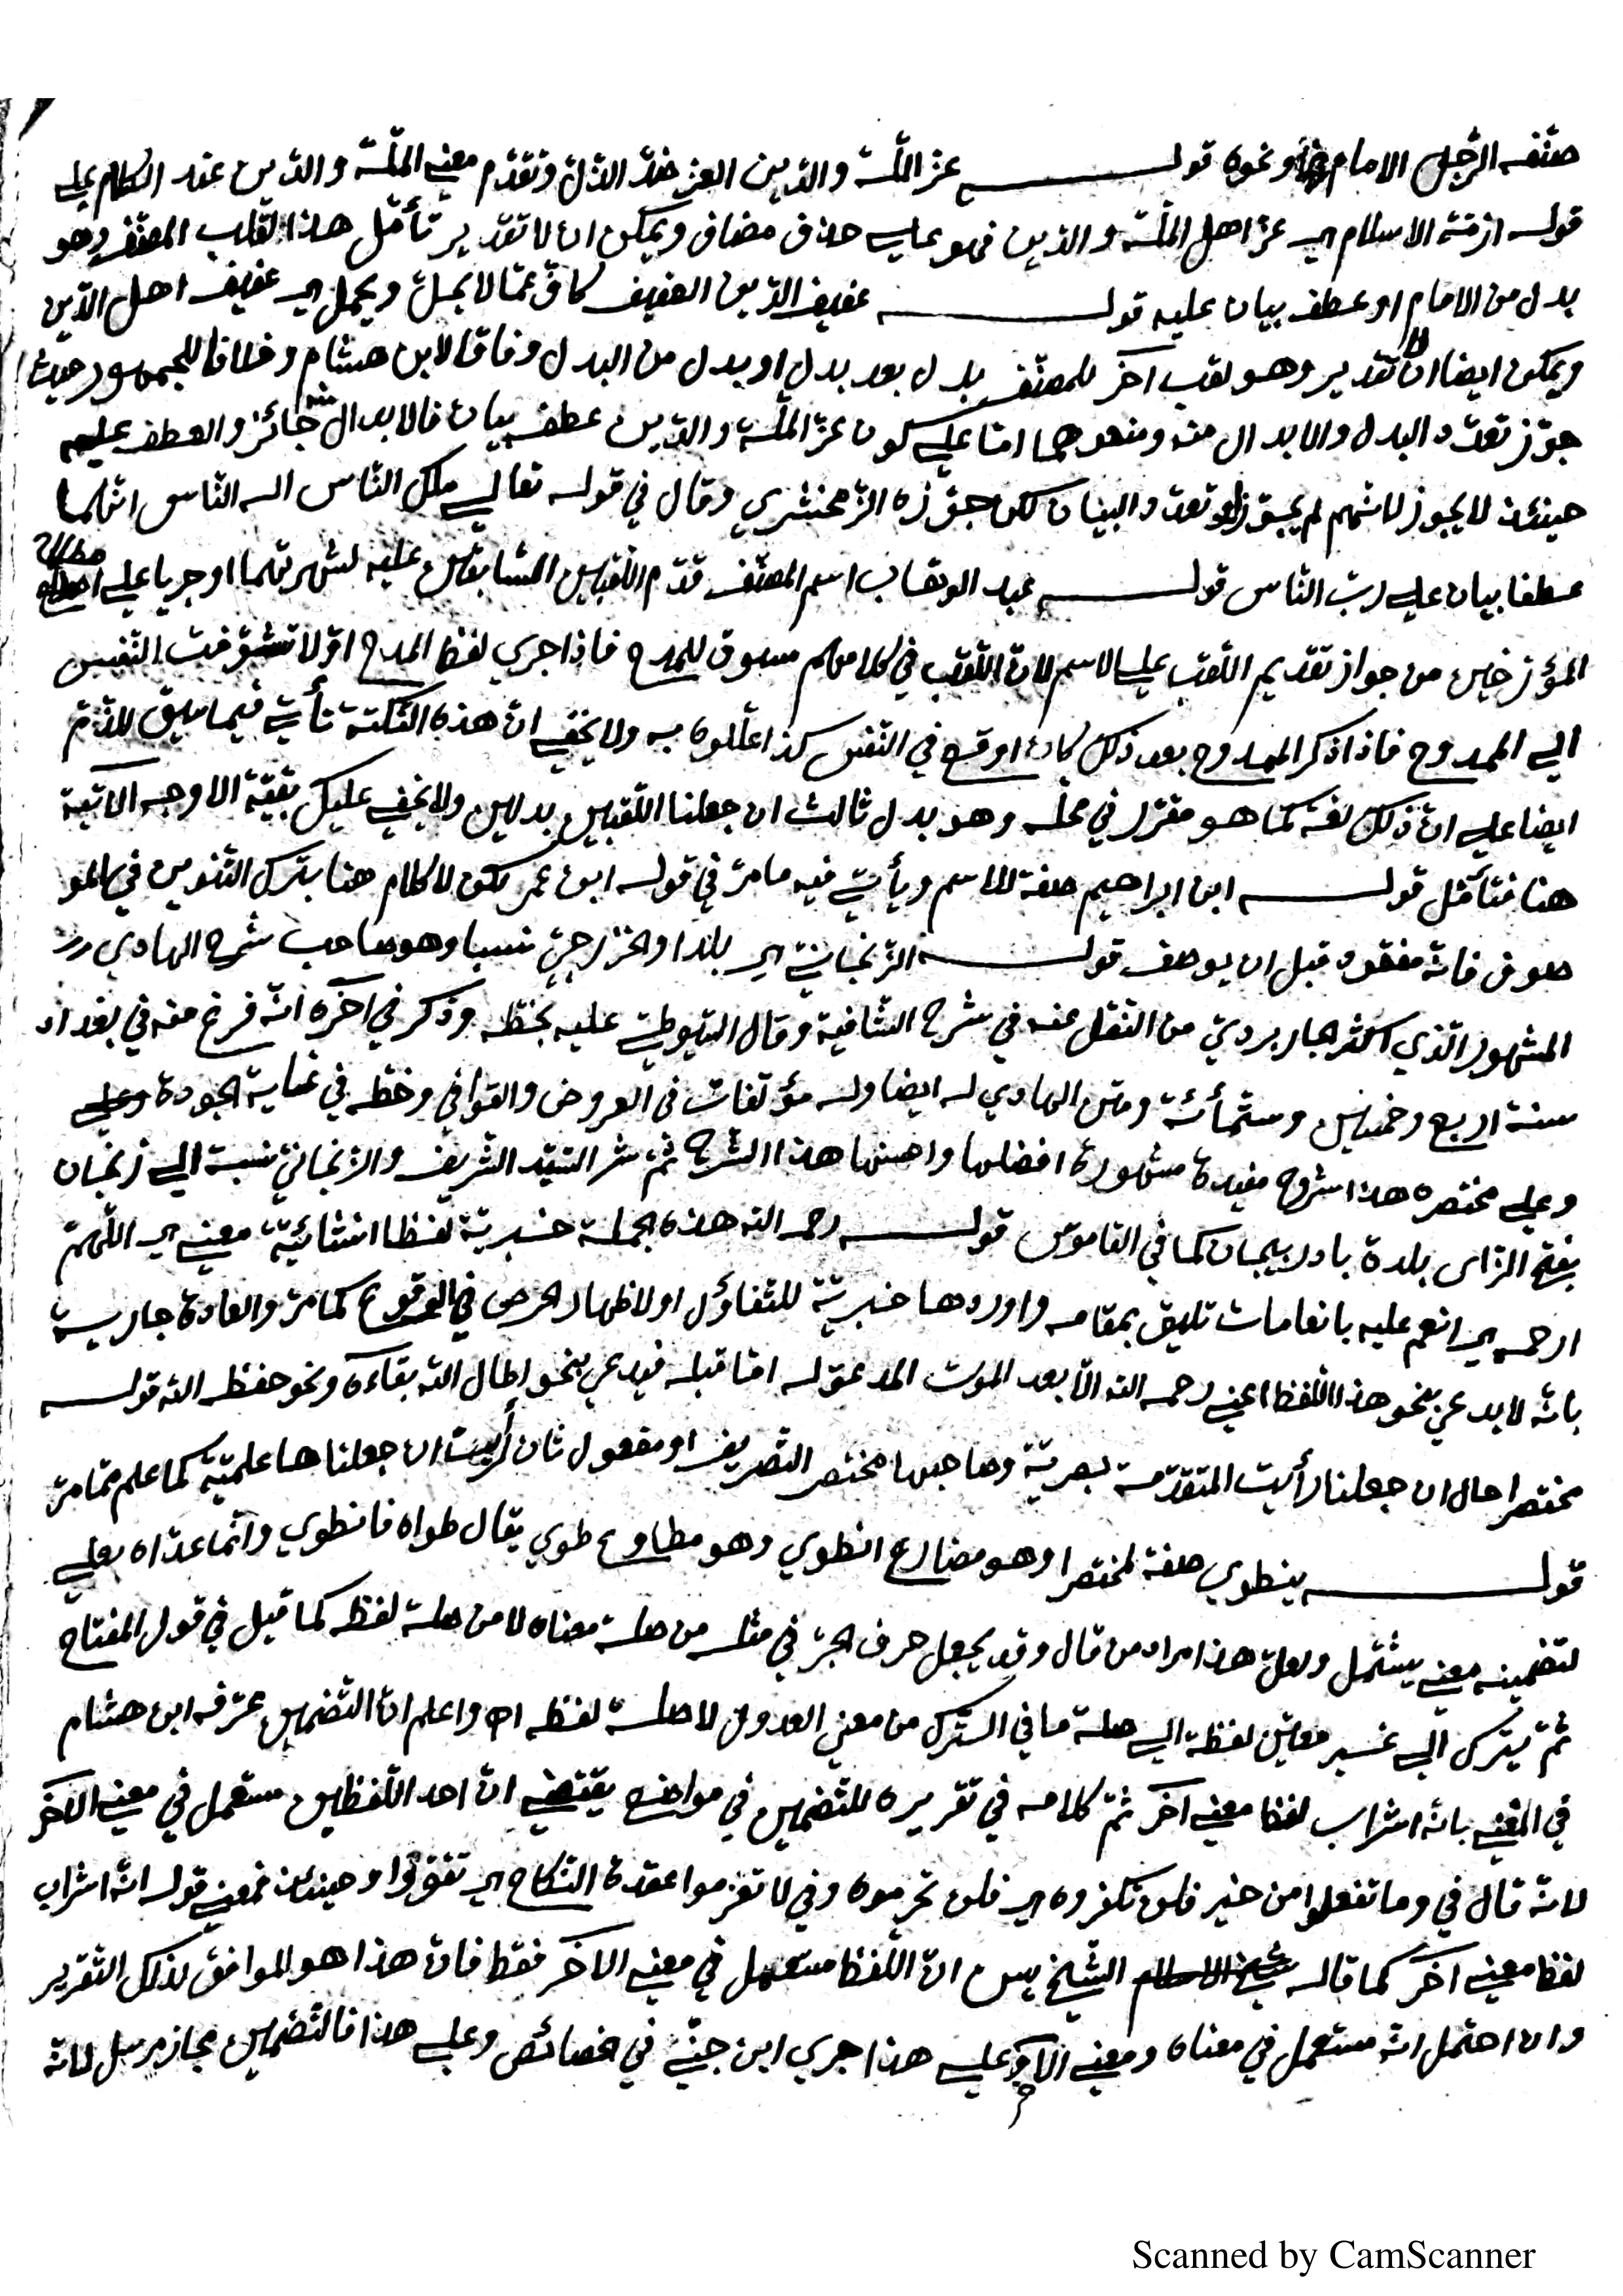 صنّفه الرّجل الامام ونحوه قولـــه عزّ الملّة والدّين العزّ ضدّ الذلّ وتقدّم معني الملّة والدّين عند الكلام علي
قوله ازمّة الاسلام اي عزّ اهل الملّة والدّين فهو علي حذف مضاف ويمكن ان لا تقدير تأمّل هذا لقب المصنّف وهو
بدل من الامام او عطف بيان عليه قولـــه عفيف الدّين العفيف كافّ عمّا لا يحلّ ويحمل اي عفيف اهل الدّين
ويمكن ايضا ان لا تقدير وهو لقب آخر للمصنّف بدل بعد بدل او بدل من البدل وفاقا لابن هشام وخلافا للجمهور حيث
جوّز تعدّد البدل والابدال منه ومنعوهما امّا علي كون عزّ الملّة والدّين عطف بيان فالابدال منه جائز والعطف عليه
حينئذ لا يجوز لانّهم لم يجوّزوا تعدّد البيان لكن جوّزه الزّمخشري وقال في قوله تعالي ملك النّاس اله النّاس انّهما
عطفا بيان علي ربّ النّاس قولـــه عبد الوهّاب اسم المصنّف قدّم اللّقبين السّابقين عليه لشهرتهما او جريا علي اصطلاح
المؤرّخين من جواز تقديم اللّقب علي الاسم لانّ اللّقب في كلامهم مسوق للمدح فاذا جري لفظ المدح اوّلا تشوّفت النّفس
الي الممدوح فاذا ذكر الممدوح بعد ذلك كان اوقع في النّفس كذا علّلوه به ولا يخفي انّ هذه النّكتة تأتي فيما سيق للذّمّ
ايضا علي انّ ذلك لغة كما هو مقرّر في محلّه وهو بدل ثالث ان جعلنا اللّقبين بدلين ولا يخفي عليك بقيّة الاوجه الآتية
هنا فتأمّل قولـــه ابن ابراهيم صفة للاسم ويأتي فيه ما مرّ في قوله ابن عمر لكن لا كلام هنا بترك التّنوين في المو
صوف فانّه مفقود قبل ان يوصف قولـــه الزّنجانيّ اي بلدا والخزرجيّ نسبا وهو صاحب شرح الهادي
المشهور الّذي اكثر الجاربرديّ من النّقل عنه في شرح الشافية وقال السّيوطيّ عليه بخطّه وذكر في آخره انّه فرغ منه في بغداد
سنة اربع وخمسين وستّمائة ومتن الهادي له ايضا وله مؤلّفات في العروض والقوافي وخطّه في غاية الجودة
وعلي مختصره هذا شروح مفيدة مشهورة افضلها واحسنها هذا الشرح ثمّ شرح السّيّد الشّريف والزّنجانيّ نسبة الي زنجان
بفتح الزاي بلدة باذربيجان كما في القاموس قولـــه رحمه اللّه هذه الجملة خبريّة لفظا انشائيّة معني اي اللّهمّ
ارحمه اي انعم عليه بانعامات تليق بمقامه واوردها خبريّة للتّفاؤل او لاظهار الحرص في الوقوع كما مرّ والعادة جارية
بانّه لا يدعي بنحو هذا اللّفظ اعني رحمه اللّه الّا بعد الموت المدعوّ له امّا قبله فيدعي بنحو اطال اللّه بقاءه ونحو حفظه اللّه قولـــه
مختصرا حال ان جعلنا رأيت المتقدّمة بصريّة وصاحبها مختصر التّصريف او مفعول ثان لرأيت ان جعلناها علميّة كما علم ممّا مرّ
قولـــه ينطوي صفة لمختصرا وهو مضارع انطوي وهو مطاوع طوي يقال طواه فانطوي وانّما عدّاه بعلي
لتضمينه معني يشتمل ولعلّ هذا مراد من قال وقد يجعل حرف الجرّ في مثله من صلة معناه لا من صلة لفظه كما قيل في قول المفتاح
ثمّ يترك الي غير معيّن لفظة الي صلة ما في الترك من معني العدول لا صلة لفظه اه واعلم انّ التّضمين عرّفه ابن هشام
في المغني بانّه اشراب لفظ معني آخر ثمّ كلامه في تقريره للتّضمين في مواضع يقتضي انّ احد اللّفظين مستعمل في معني الآخر
لانّه قال في وما تفعلوا من خير فلن تكفروه اي فلن تحرموه وفي لا تعزموا عقدة النّكاح اي تنووا وحينئذ فمعني قوله انّه اشراب
لفظ معني آخر كما قاله الشّيخ يس انّ اللّفظ مستعمل في معني الآخر فقط فانّ هذا هو الموافق لذلك التّقرير
وان احتمل انّه مستعمل في معناه ومعني الآخر وعلي هذا جري ابن جنّيّ في الخصائص وعلي هذا فالتّضمين مجاز مرسل لانّه
Scanned by CamScanner